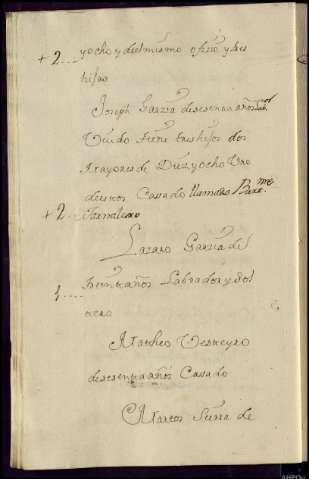 + 2.... yocho y del mismo ofizio y tres
hijas
Joseph Garzia de sesenta años
Viudo tiene tres hijos dos
Mayores de Diez y ocho Uno
de ellos Casado llamado Barme
+ 2 Jornalero
Lazaro Garzia de
treinta años Labrador y sol
1.... tero
Matheo
de sesenta años Casado
Marcos Sierra de